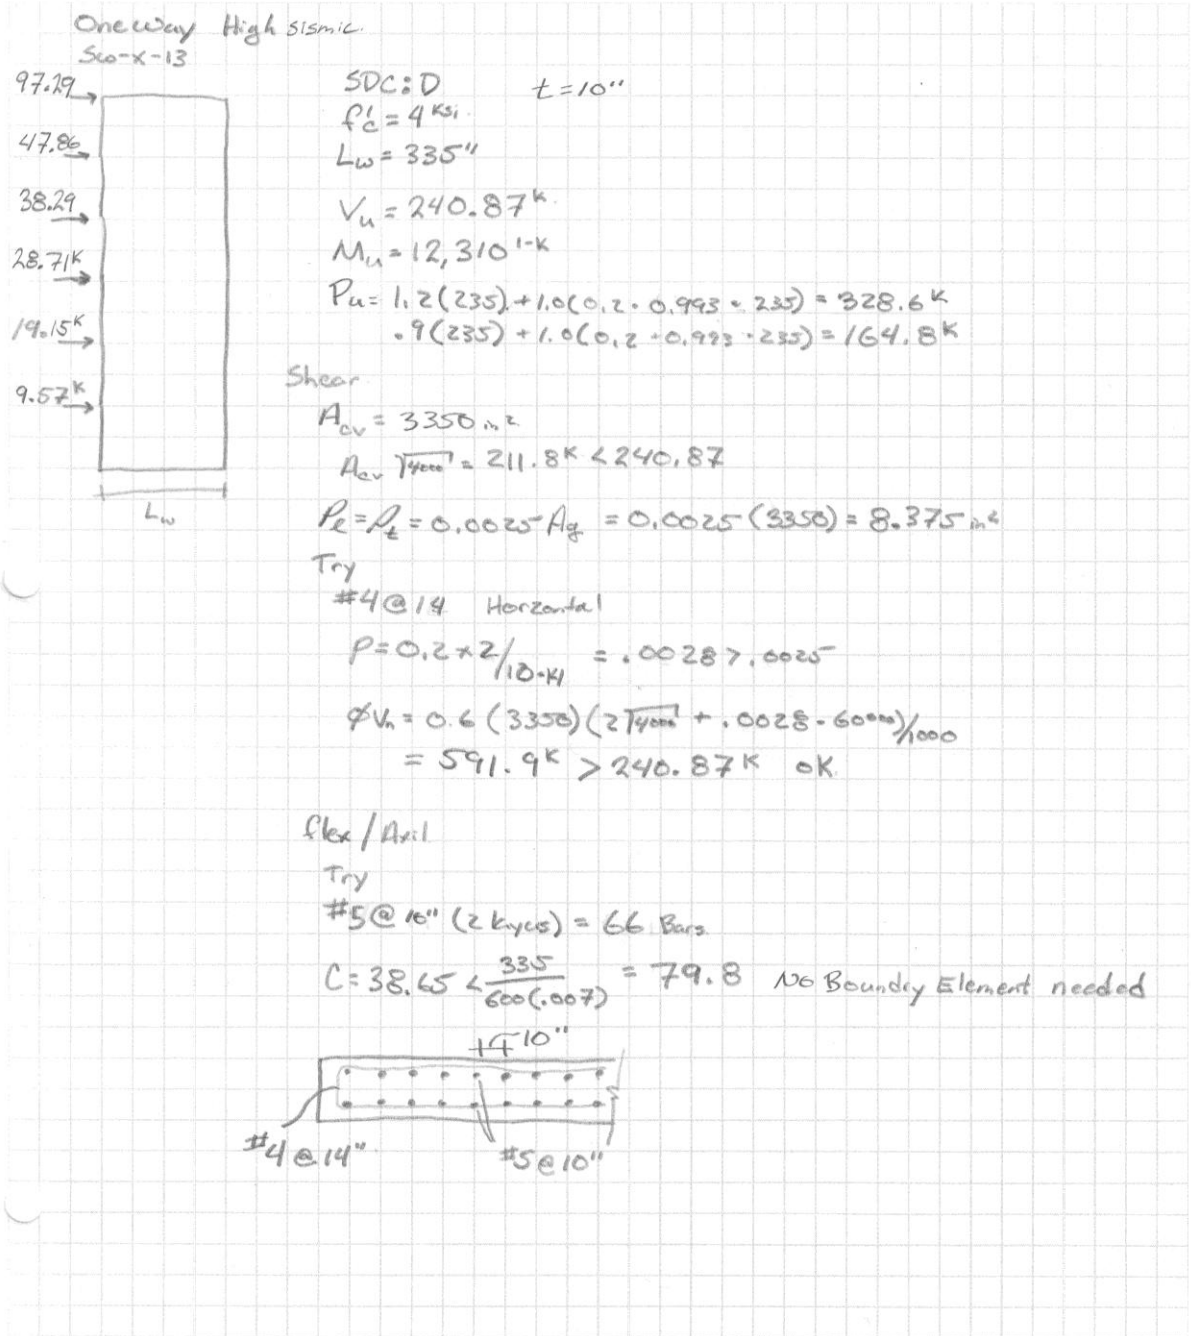 One way High sismic.
SW-X-13
97.29
47.86
38.29
28.71K
19.15K
9.57K
Lw
SDC: D t=10"
f'c = 4 ksi
Lw = 335"
Vu = 240.87K
Mu = 12,310 '-K
Pu = 1.2(235) + 1.0(0.2 · 0.993 · 235) = 328.6K
.9(235) + 1.0(0.2 · 0.993 · 235) = 164.8K
Shear
Acv = 3350 in2
Acv √4000 = 211.8K < 240.87
Pl = Pt = 0.0025 Ag = 0.0025 (3350) = 8.375 in2
Try
#4 @ 14 Horzontal
ρ = 0.2 x 2/10·14 = .0028 > .0025
φVn = 0.6 (3350)(2√4000 + .0028 · 60000)/1000
= 591.9K > 240.87K OK
flex / Axil
Try
#5 @ 10" (2 layers) = 66 Bars
C = 38.65 < 335/600(.007) = 79.8 No Boundry Element needed
10"
#4 @ 14"
#5 @ 10"